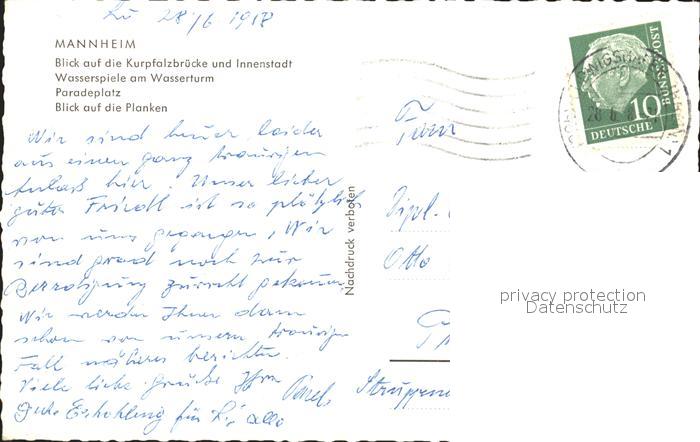 Lu 28/6 1958
MANNHEIM
Blick auf die Kurpfalzbrücke und Innenstadt
Wasserspiele am Wasserturm
Paradeplatz
Blick auf die Planken
Wir sind heuer leider
aus einem ganz traurigen
Anlaß hier. Unser lieber
guter Friedl ist so plötzlich
von uns gegangen, Wir
sind grad noch zur
Beerdigung zurecht gekommen
Wir werden Ihnen dann
schon von unserm traurigen
Fall näheres berichten.
Viele liebe Grüße Ihre
Gute Erholung für Sie alle
Nachdruck verboten
Dipl.
Otto
DEUTSCHE
BUNDESPOST
10
privacy protection
Datenschutz